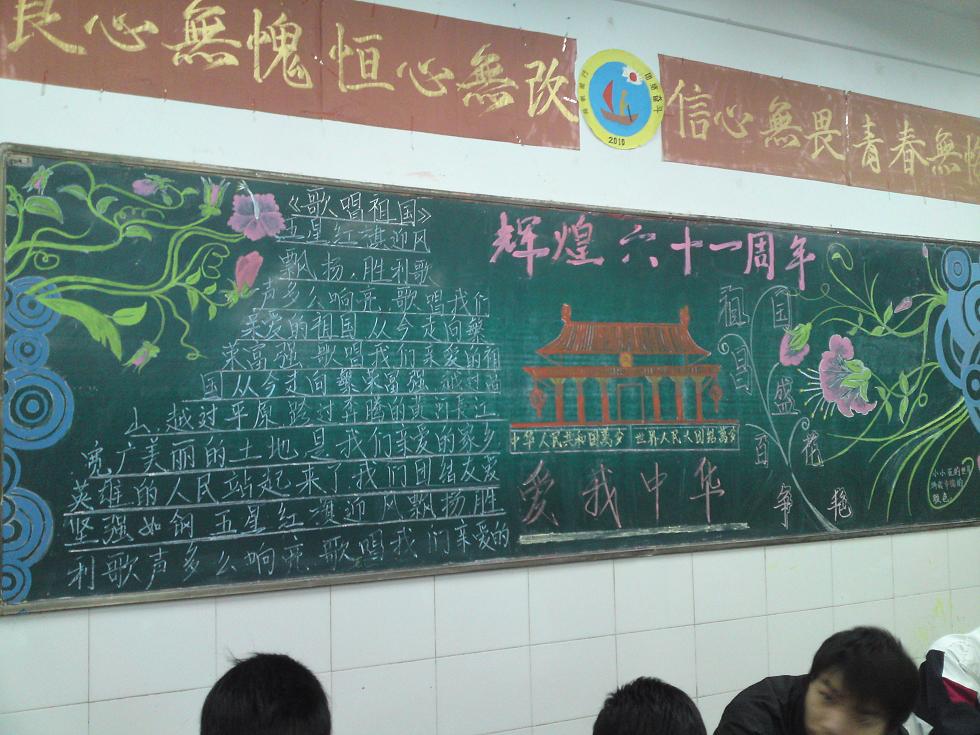 良心無愧 恒心無改
信心無畏 青春無悔
2010
《歌唱祖国》
五星红旗迎风
飘扬,胜利歌
声多么响亮,歌唱我们
亲爱的祖国,从今走向繁
荣富强,歌唱我们亲爱的祖
国从今走向繁荣富强,越过高
山,越过平原,跨过奔腾的黄河长江
宽广美丽的土地,是我们亲爱的家乡
英雄的人民站起来了我们团结友爱
坚强如钢,五星红旗迎风飘扬胜
利歌声多么响亮,歌唱我们亲爱的
辉煌六十一周年
中华人民共和国萬歲 世界人民大团結萬歲
爱我中华
祖国昌盛
百花争艳